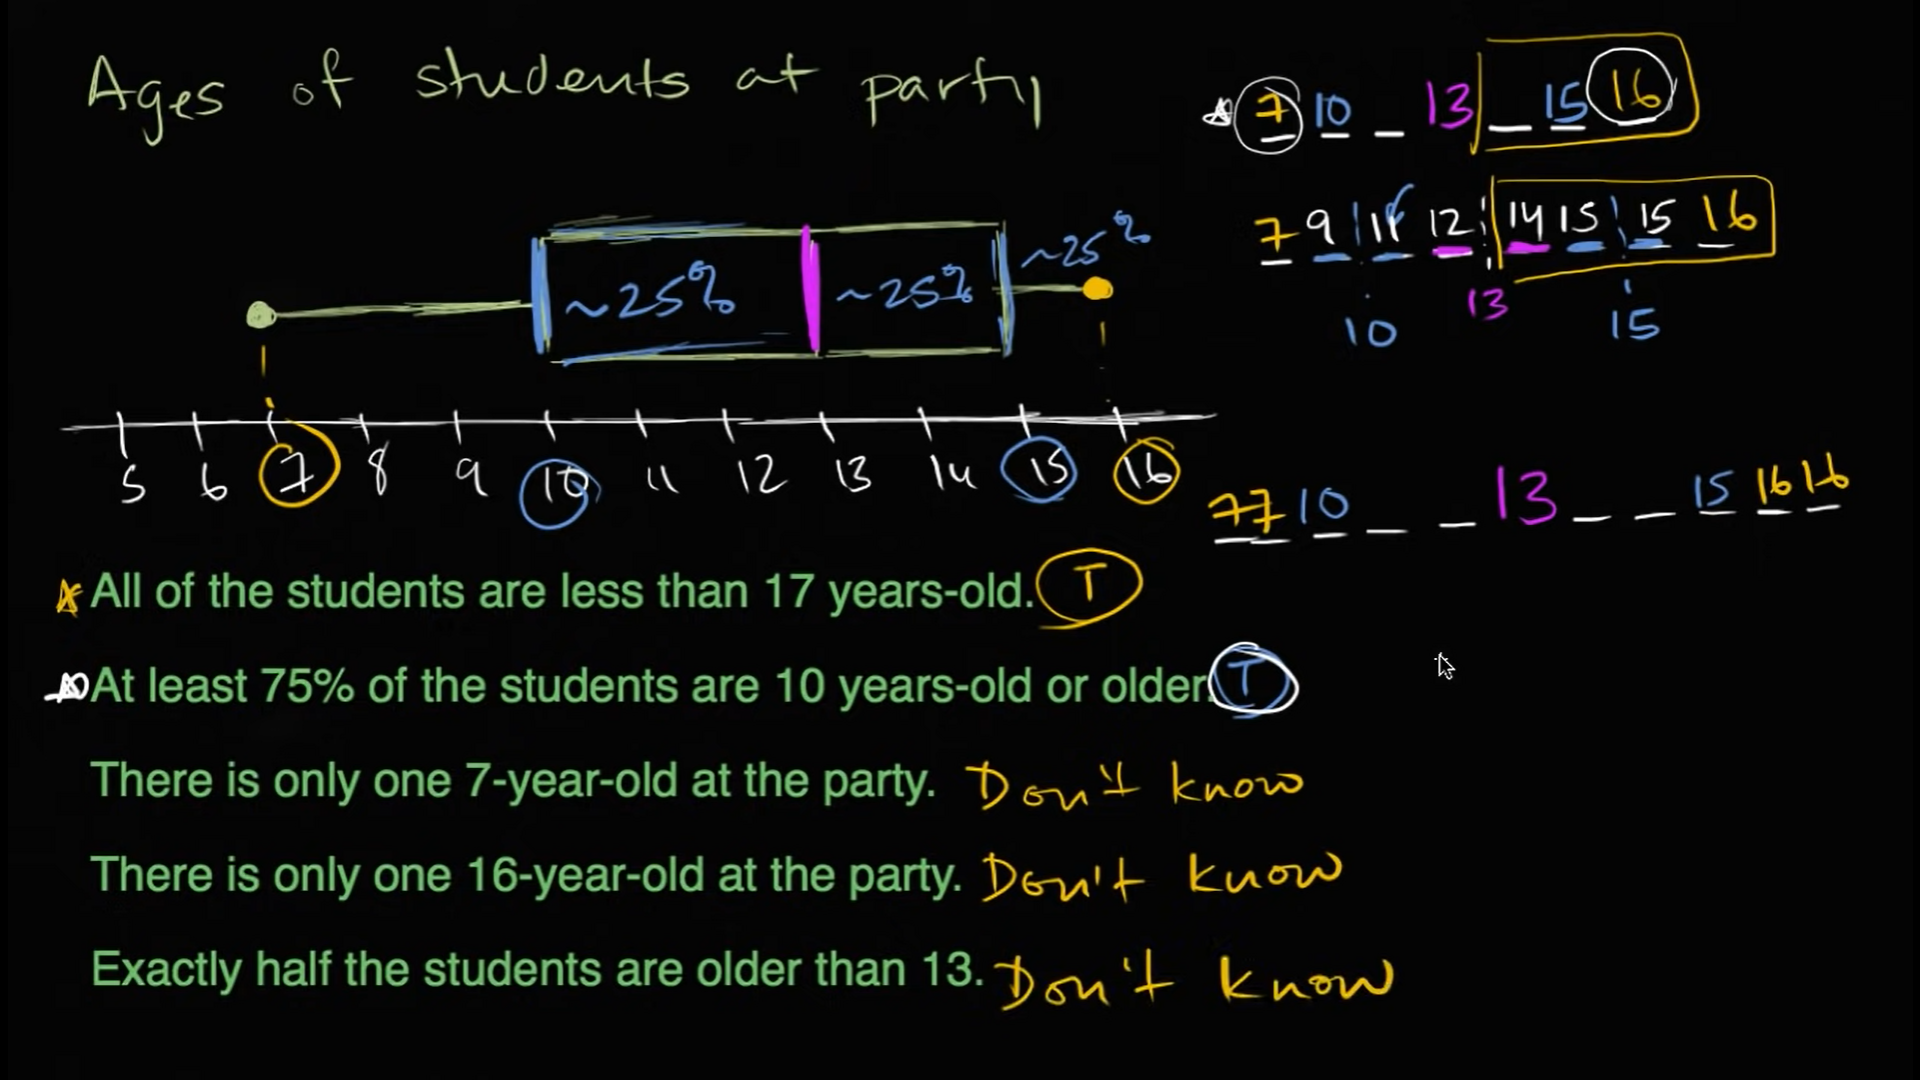 Ages of students at party
7 10 _ 13 _ 15 16
7 9 11 12 14 15 15 16
10 13 15
~25% ~25% ~25%
5 6 7 8 9 10 11 12 13 14 15 16
7 7 10 _ _ 13 _ _ 15 16 16
All of the students are less than 17 years-old. T
At least 75% of the students are 10 years-old or older. T
There is only one 7-year-old at the party. Don't know
There is only one 16-year-old at the party. Don't know
Exactly half the students are older than 13. Don't know